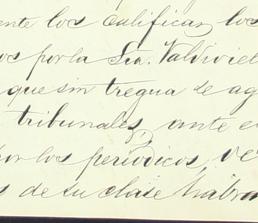 ente los califican, los
os por la Sra. Valdiviel
que sin tregua se ag
tribunales, ante e
por los periodicos, ve
s de su clase habra